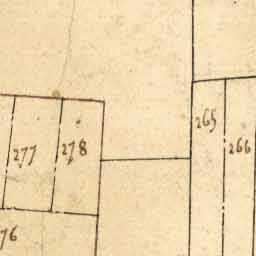 265
266
277
278
76